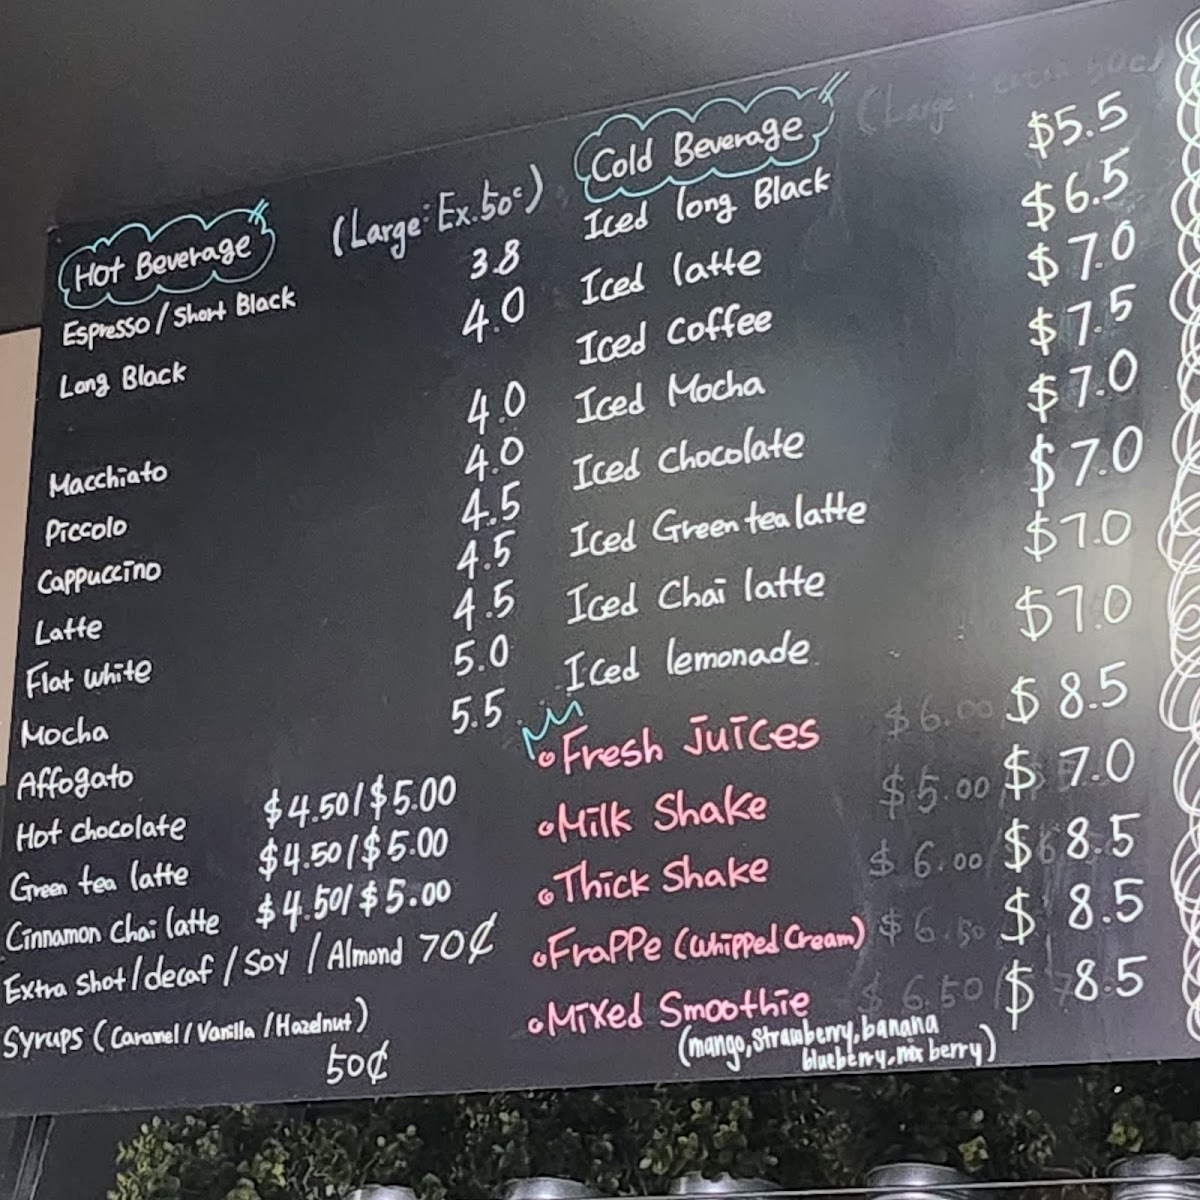 Hot Beverage (Large: Ex.50c)
Espresso / Short Black 3.8
Long Black 4.0
Macchiato 4.0
Piccolo 4.0
Cappuccino 4.5
Latte 4.5
Flat white 4.5
Mocha 5.0
Affogato 5.5
Hot chocolate $4.50/$5.00
Green tea latte $4.50/$5.00
Cinnamon Chai latte $4.50/$5.00
Extra Shot/decaf/Soy/Almond 70¢
Syrups (Caramel/Vanilla/Hazelnut)
50¢
Cold Beverage (Large: extra 50c)
Iced long Black $5.5
Iced latte $6.5
Iced coffee $7.0
Iced Mocha $7.5
Iced chocolate $7.0
Iced Green tea latte $7.0
Iced Chai latte $7.0
Iced lemonade $7.0
Fresh Juices $6.00 $8.5
Milk Shake $5.00 $7.0
Thick Shake $6.00 $8.5
Frappe (Whipped Cream) $6.50 $8.5
Mixed Smoothie $6.50 $8.5
(mango, Strawberry, banana
blueberry, mix berry)